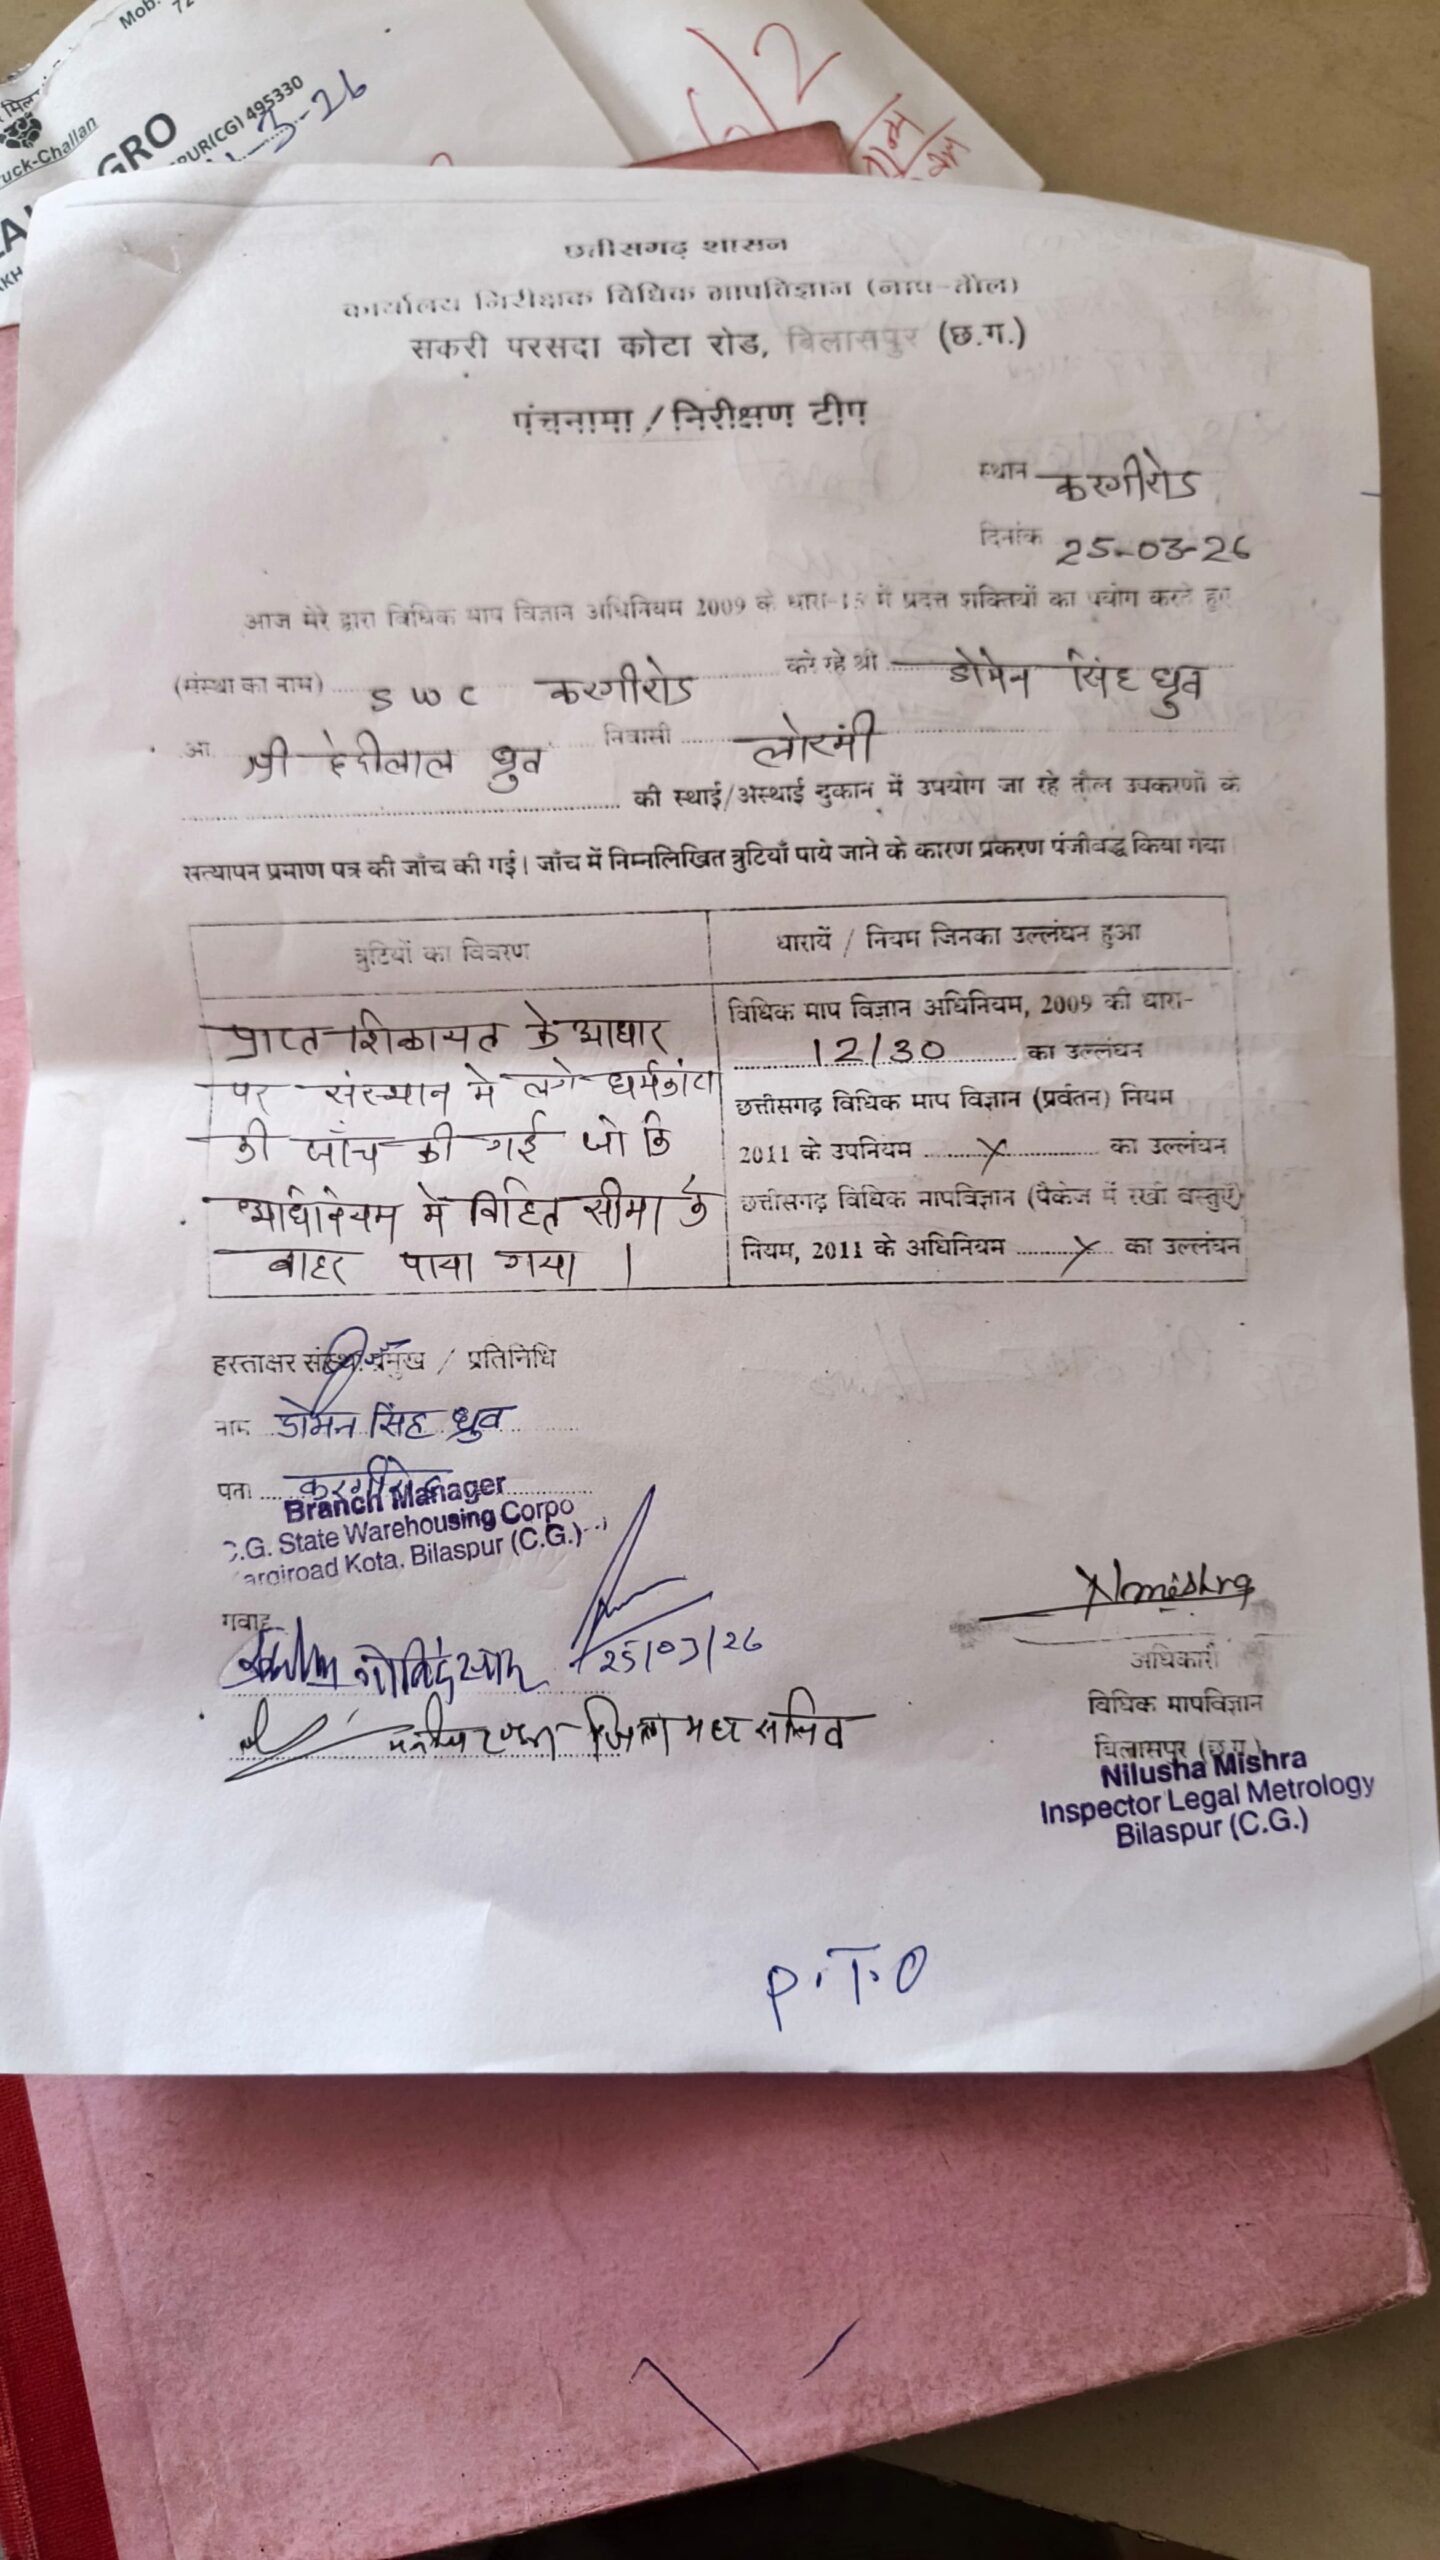 Mob.
72
uck-Challan
GRO
PUR(CG) 495330
3-26
छत्तीसगढ़ शासन
कार्यालय निरीक्षक विधिक मापविज्ञान (नाप-तौल)
सकरी परसदा कोटा रोड, बिलासपुर (छ.ग.)
पंचनामा / निरीक्षण टीप
स्थान करगीरोड
दिनांक 25-03-26
आज मेरे द्वारा विधिक माप विज्ञान अधिनियम 2009 के धारा-15 में प्रदत्त शक्तियों का पयोग करते हुए
(संस्था का नाम) SWC करगीरोड करे रहे श्री डोमेन सिंह ध्रुव
आ. श्री हेदीलाल ध्रुव निवासी लोरमी
की स्थाई/अस्थाई दुकान में उपयोग जा रहे तौल उपकरणों के
सत्यापन प्रमाण पत्र की जाँच की गई। जाँच में निम्नलिखित त्रुटियाँ पाये जाने के कारण प्रकरण पंजीवद्ध किया गया
त्रुटियों का विवरण
धारायें / नियम जिनका उल्लंघन हुआ
प्राप्त शिकायत के आधार
पर संस्थान मे लगे धर्मकांटा
की जाँच की गई जो कि
अधिनियम मे विहित सीमा के
बाहर पाया गया ।
विधिक माप विज्ञान अधिनियम, 2009 की धारा-
12/30 का उल्लंघन
छत्तीसगढ़ विधिक माप विज्ञान (प्रर्वतन) नियम
2011 के उपनियम X का उल्लंघन
छत्तीसगढ़ विधिक नापविज्ञान (पैकेज में रखी वस्तुएँ)
नियम, 2011 के अधिनियम X का उल्लंघन
हस्ताक्षर संस्था प्रमुख / प्रतिनिधि
नाम डोमन सिंह ध्रुव
पता करगीरोड
Branch Manager
C.G. State Warehousing Corpo
argiroad Kota, Bilaspur (C.G.)
गवाह
25/03/26
Nmishra
अधिकारी
विधिक मापविज्ञान
बिलासपुर (छ.ग.)
Nilusha Mishra
Inspector Legal Metrology
Bilaspur (C.G.)
P.T.O